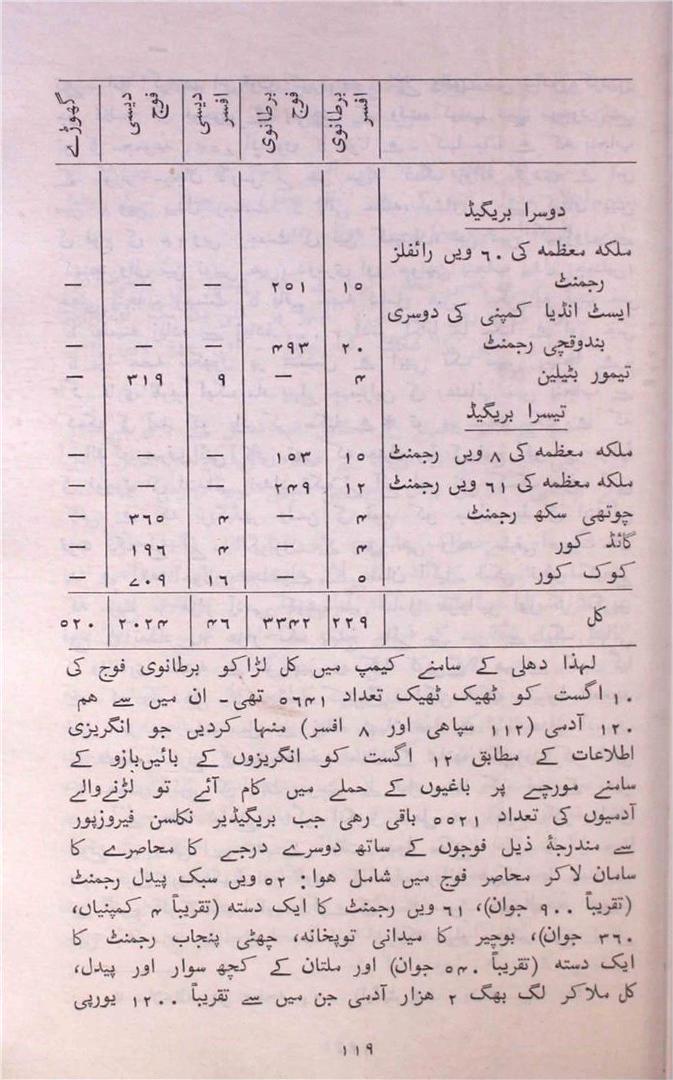 برطانوی افسر | برطانوی فوج | دیسی افسر | دیسی فوج | گھوڑے
دوسرا بریگیڈ
ملکہ معظمہ کی ۶۰ ویں رائفلز
رجمنٹ ۱۵ ۲۵۱ — — —
ایسٹ انڈیا کمپنی کی دوسری
بندوقچی رجمنٹ ۲۰ ۴۹۳ — — —
تیمور بٹیلین ۴ — ۹ ۳۱۹ —
تیسرا بریگیڈ
ملکہ معظمہ کی ۸ ویں رجمنٹ ۱۵ ۱۵۳ — — —
ملکہ معظمہ کی ۶۱ ویں رجمنٹ ۱۲ ۲۴۹ — — —
چوتھی سکھ رجمنٹ ۴ — ۴ ۳۶۵ —
گائڈ کور ۴ — ۴ ۱۹۶ —
کوک کور ۵ — ۱۶ ۷۰۹ —
کل ۲۲۹ ۳۳۴۲ ۴۶ ۲۰۲۴ ۵۲۰
لہذا دھلی کے سامنے کیمپ میں کل لڑاکو برطانوی فوج کی
۱۰ اگست کو ٹھیک ٹھیک تعداد ۵۶۴۱ تھی۔ ان میں سے ھم
۱۲۰ آدمی (۱۱۲ سپاھی اور ۸ افسر) منہا کردیں جو انگریزی
اطلاعات کے مطابق ۱۲ اگست کو انگریزوں کے بائیں بازو کے
سامنے مورچے پر باغیوں کے حملے میں کام آئے تو لڑنےوالے
آدمیوں کی تعداد ۵۵۲۱ باقی رھی جب بریگیڈیر نکلسن فیروزپور
سے مندرجۂ ذیل فوجوں کے ساتھ دوسرے درجے کا محاصرے کا
سامان لاکر محاصر فوج میں شامل ھوا: ۵۲ ویں سبک پیدل رجمنٹ
(تقریباً ۹۰۰ جوان)، ۶۱ ویں رجمنٹ کا ایک دستہ (تقریباً ۴ کمپنیاں،
۳۶۰ جوان)، بوچیر کا میدانی توپخانہ، چھٹی پنجاب رجمنٹ کا
ایک دستہ (تقریباً ۵۴۰ جوان) اور ملتان کے کچھ سوار اور پیدل،
کل ملاکر لگ بھگ ۲ ھزار آدمی جن میں سے تقریباً ۱۲۰۰ یورپی
۱۱۹